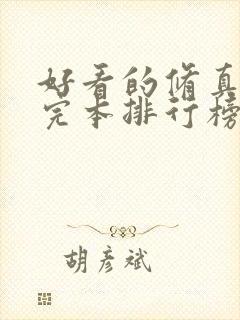 好看的修真
完本排行榜
胡彦斌